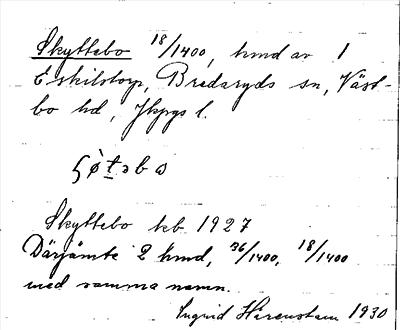 Skyttebo 18/1400, hmd av 1
Eskilstorp, Bredaryds sn, Väst-
bo hd, Jkpgs l.
ʂø̀t̲ɔbɷ
Skyttebo kb 1927
Därjämte 2 hmd, 36/1400, 18/1400
med samma namn.
Ingrid Härenstam 1930